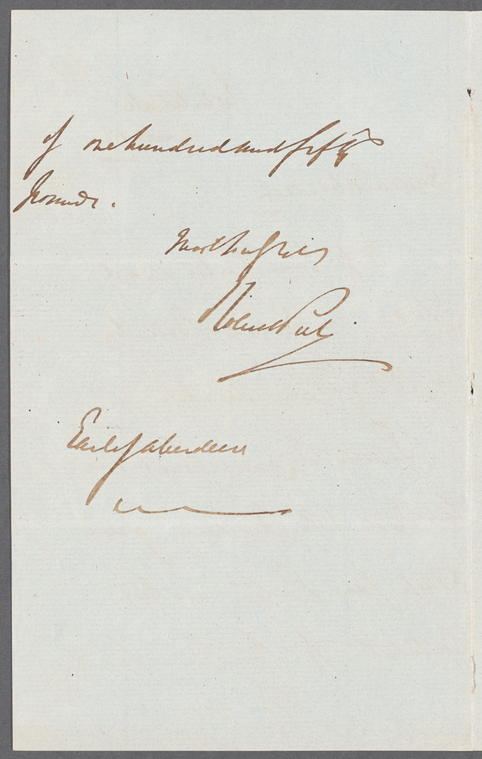 of one hundred and fifty
pounds.
most truly yrs
Robert Peel
Earl of Aberdeen